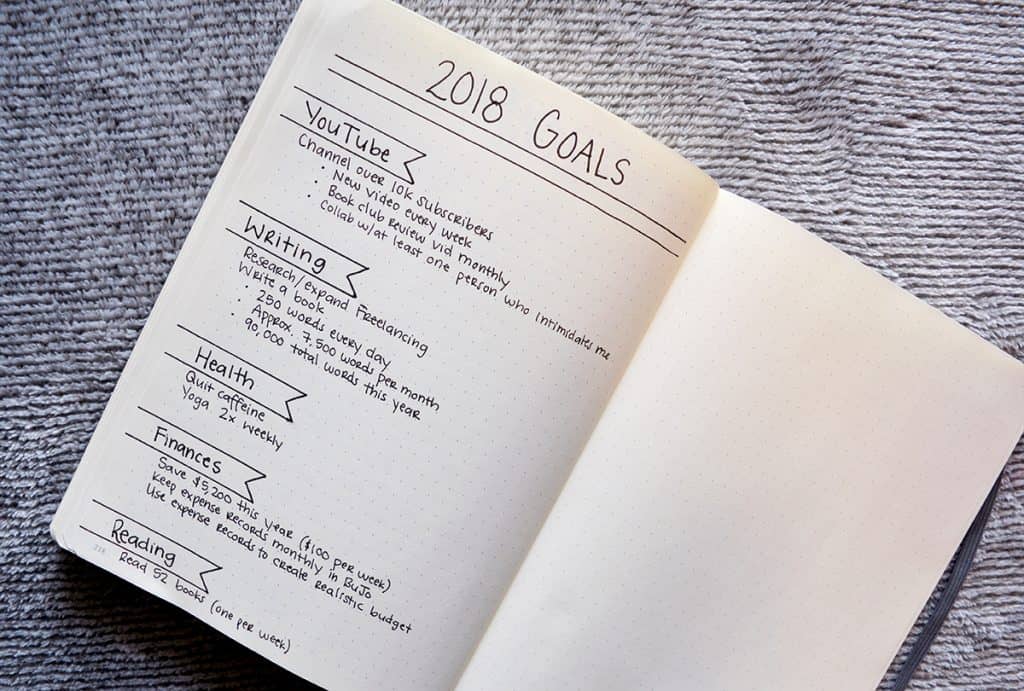 2018 GOALS
YouTube
Channel over 10k subscribers
• New video every week
• Book club review vid monthly
• Collab w/at least one person who intimidates me
Writing
Research/expand Freelancing
Write a book
• 250 words every day
• Approx. 7,500 words per month
• 90,000 total words this year
Health
Quit caffeine
Yoga 2x weekly
Finances
Save $5,200 this year ($100 per week)
Keep expense records monthly in BuJo
Use expense records to create realistic budget
Reading
Read 52 books (one per week)